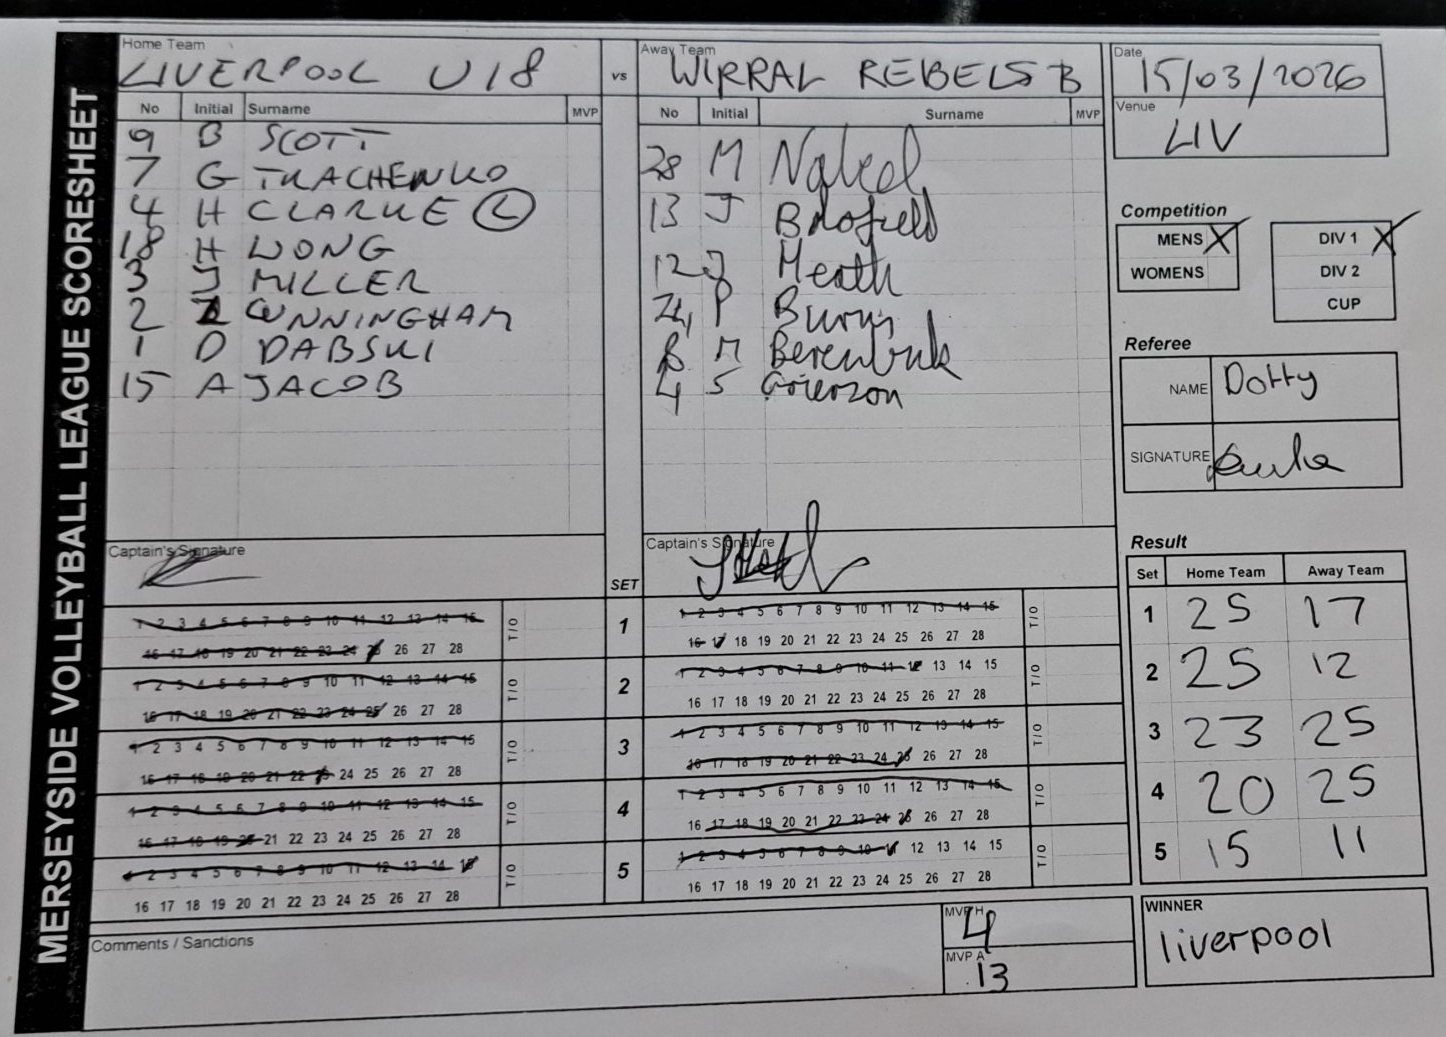 MERSEYSIDE VOLLEYBALL LEAGUE SCORESHEET
Home Team
LIVERPOOL U18
vs
Away Team
WIRRAL REBELS B
Date
15/03/2026
Venue
LIV
No Initial Surname MVP
9 B SCOTT
7 G TKACHENKO
4 H CLARKE L
18 H WONG
3 J MILLER
2 CUNNINGHAM
1 D DABSKI
15 A JACOB
No Initial Surname MVP
28 M
13 J
12 J Heath
24 P Burns
8 M
4 S Grierzon
Competition
MENS X
WOMENS
DIV 1 X
DIV 2
CUP
Referee
NAME Dotty
SIGNATURE
Captain's Signature
SET
Captain's Signature
1 2 3 4 5 6 7 8 9 10 11 12 13 14 15
16 17 18 19 20 21 22 23 24 25 26 27 28
T/O
1
1 2 3 4 5 6 7 8 9 10 11 12 13 14 15
16 17 18 19 20 21 22 23 24 25 26 27 28
T/O
1 2 3 4 5 6 7 8 9 10 11 12 13 14 15
16 17 18 19 20 21 22 23 24 25 26 27 28
T/O
2
1 2 3 4 5 6 7 8 9 10 11 12 13 14 15
16 17 18 19 20 21 22 23 24 25 26 27 28
T/O
1 2 3 4 5 6 7 8 9 10 11 12 13 14 15
16 17 18 19 20 21 22 23 24 25 26 27 28
T/O
3
1 2 3 4 5 6 7 8 9 10 11 12 13 14 15
16 17 18 19 20 21 22 23 24 25 26 27 28
T/O
1 2 3 4 5 6 7 8 9 10 11 12 13 14 15
16 17 18 19 20 21 22 23 24 25 26 27 28
T/O
4
1 2 3 4 5 6 7 8 9 10 11 12 13 14 15
16 17 18 19 20 21 22 23 24 25 26 27 28
T/O
1 2 3 4 5 6 7 8 9 10 11 12 13 14 15
16 17 18 19 20 21 22 23 24 25 26 27 28
T/O
5
1 2 3 4 5 6 7 8 9 10 11 12 13 14 15
16 17 18 19 20 21 22 23 24 25 26 27 28
T/O
Result
Set Home Team Away Team
1 25 17
2 25 12
3 23 25
4 20 25
5 15 11
Comments / Sanctions
MVP H
4
MVP A
13
WINNER
liverpool